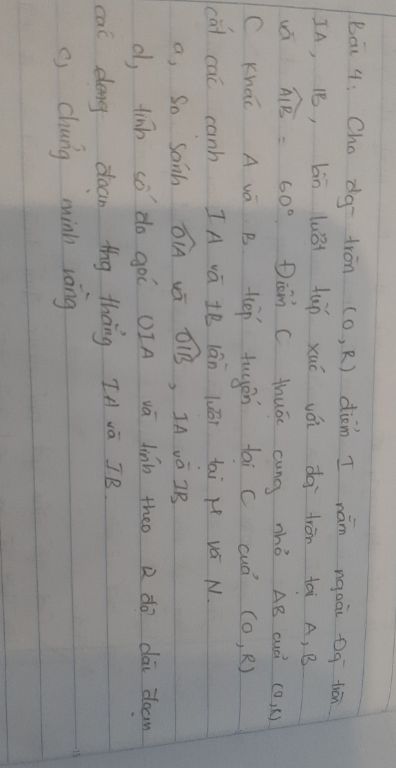 Bài 4: Cho đg tròn (O, R) điểm I nằm ngoài đg tròn
IA, IB, lần lượt tiếp xúc với đg tròn tại A, B
và AIB = 60° Điểm C thuộc cung nhỏ AB của (O, R)
C khác A và B tiếp tuyến tại C của (O, R)
cắt các cạnh IA và IB lần lượt tại M và N.
a, So sánh OIA và OIB, IA và IB
d, tính số đo góc OIA và tính theo R độ dài đoạn
các đoạn thg thẳng IA và IB.
c, chứng minh rằng